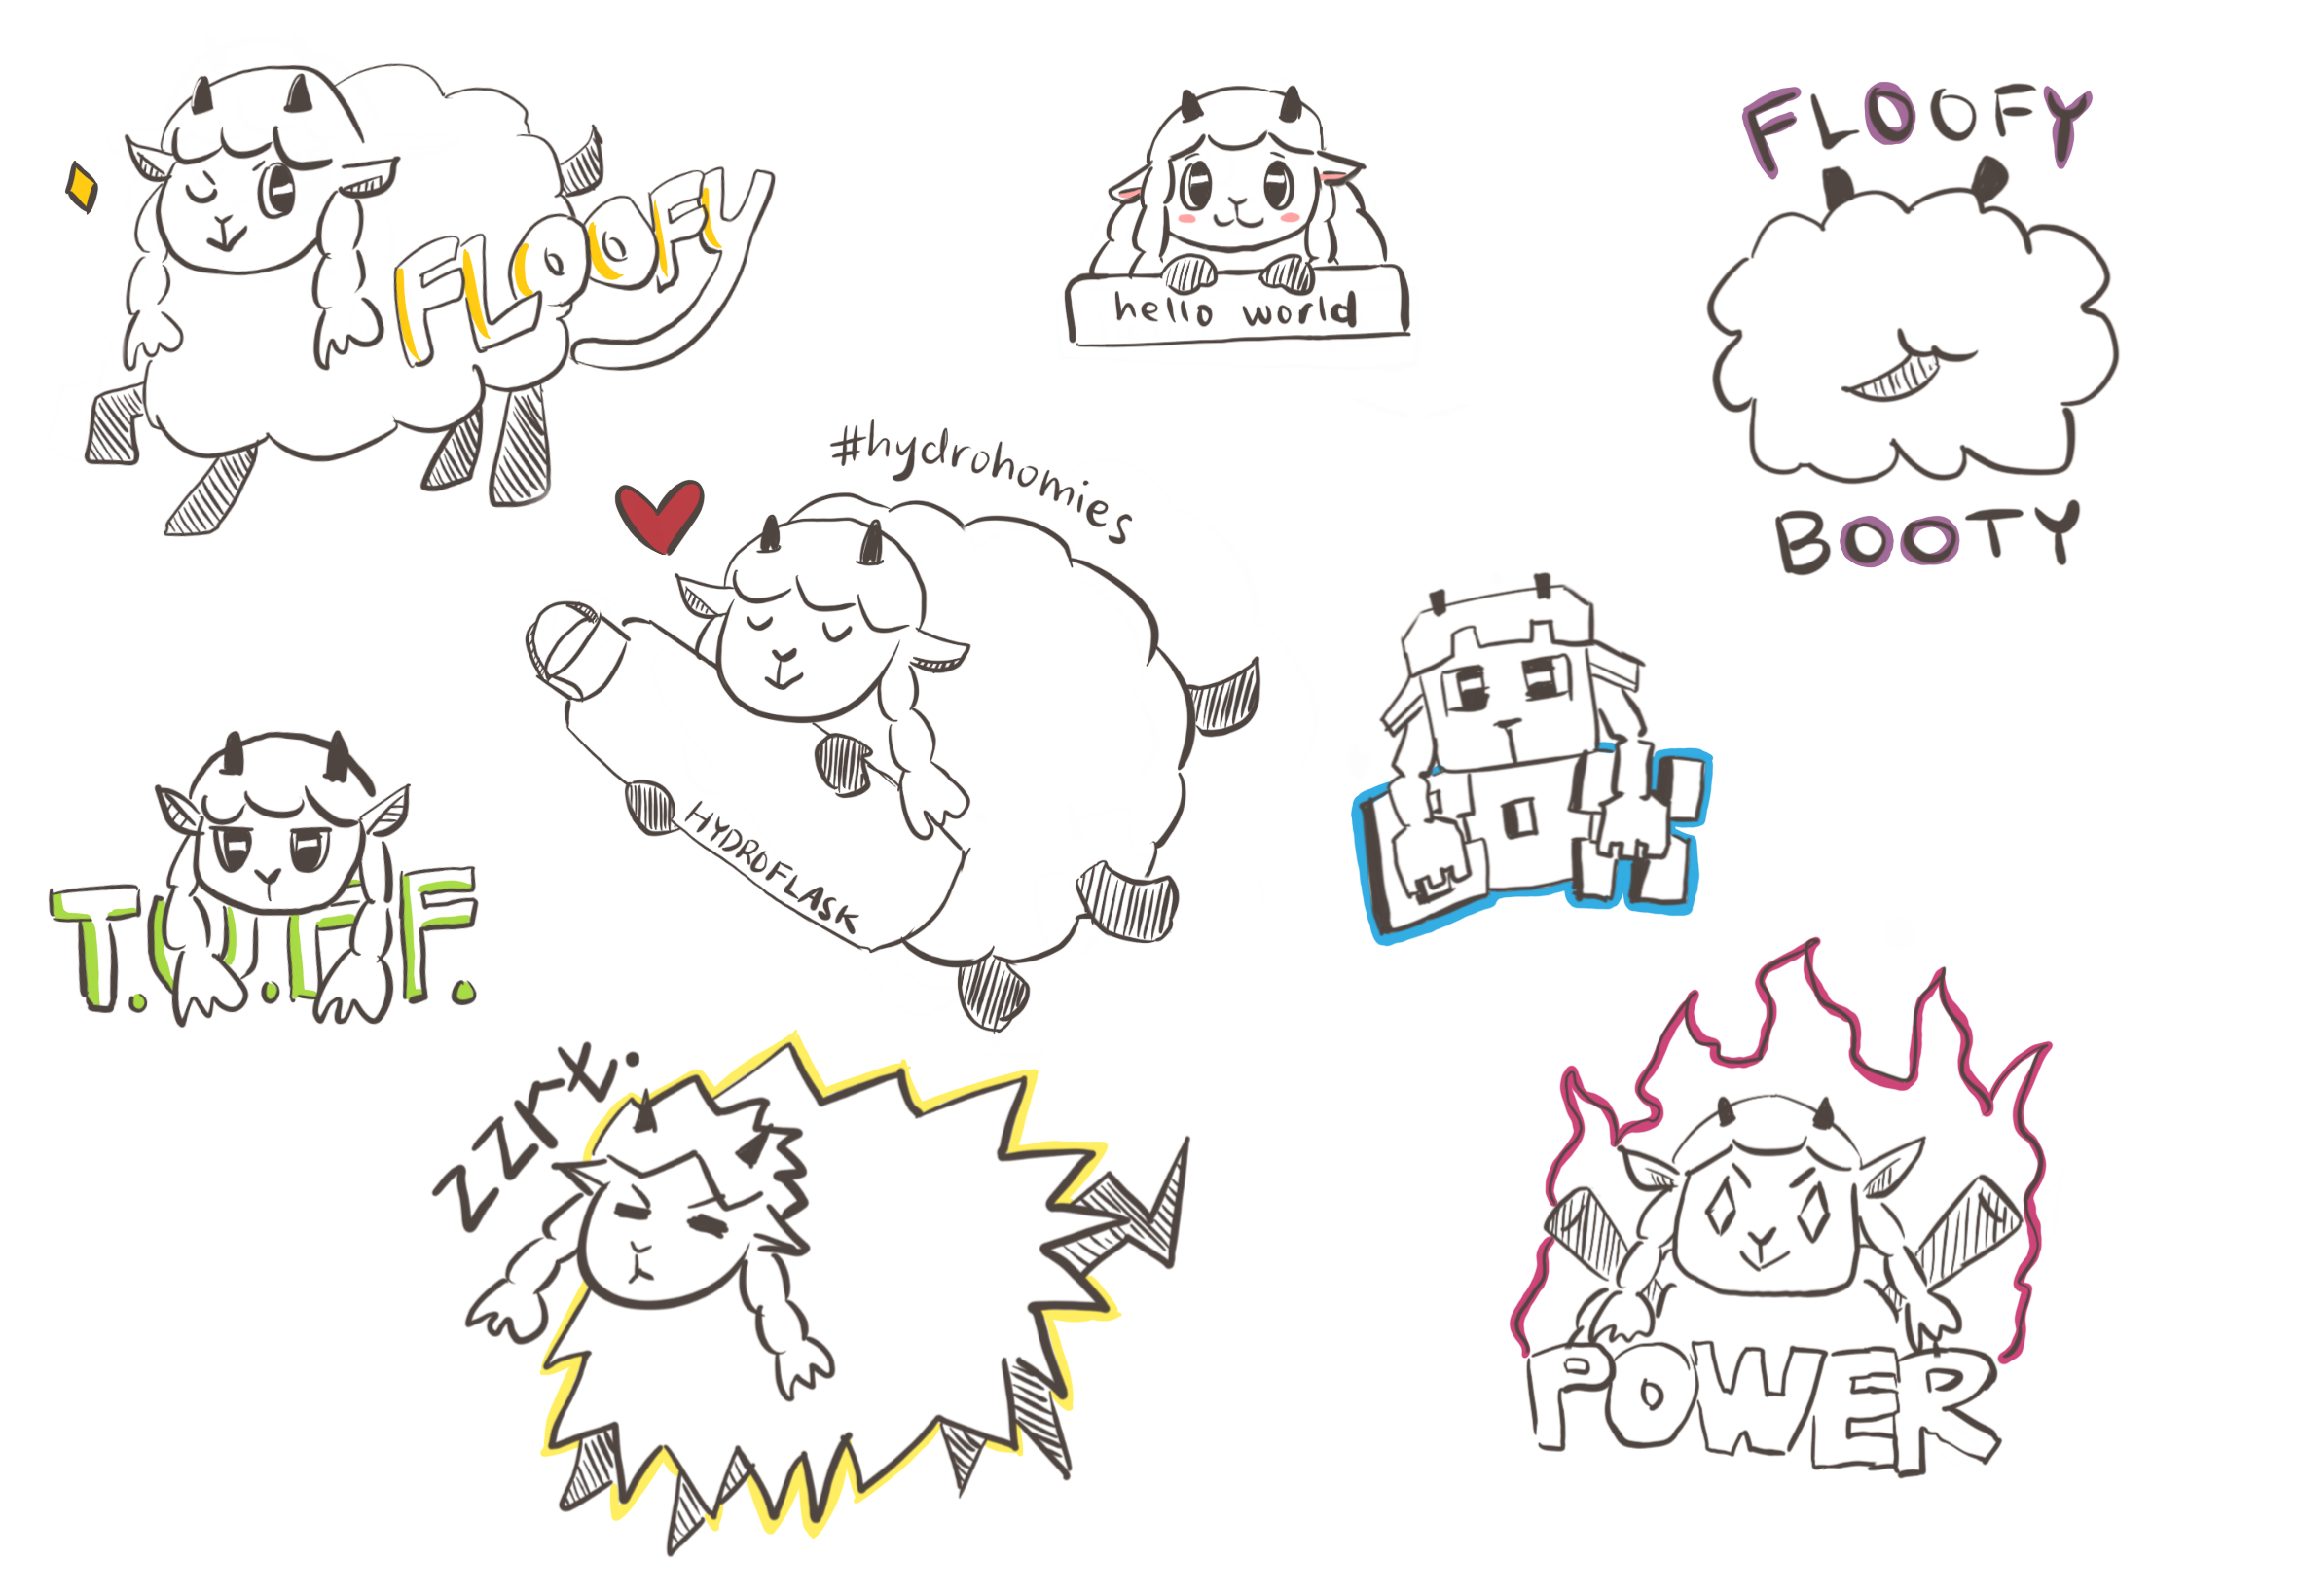 FLOOFY
hello world
FLOOFY
BOOTY
#hydrohomies
HYDROFLASK
T.U.F.F.
ZZrt.
POWER